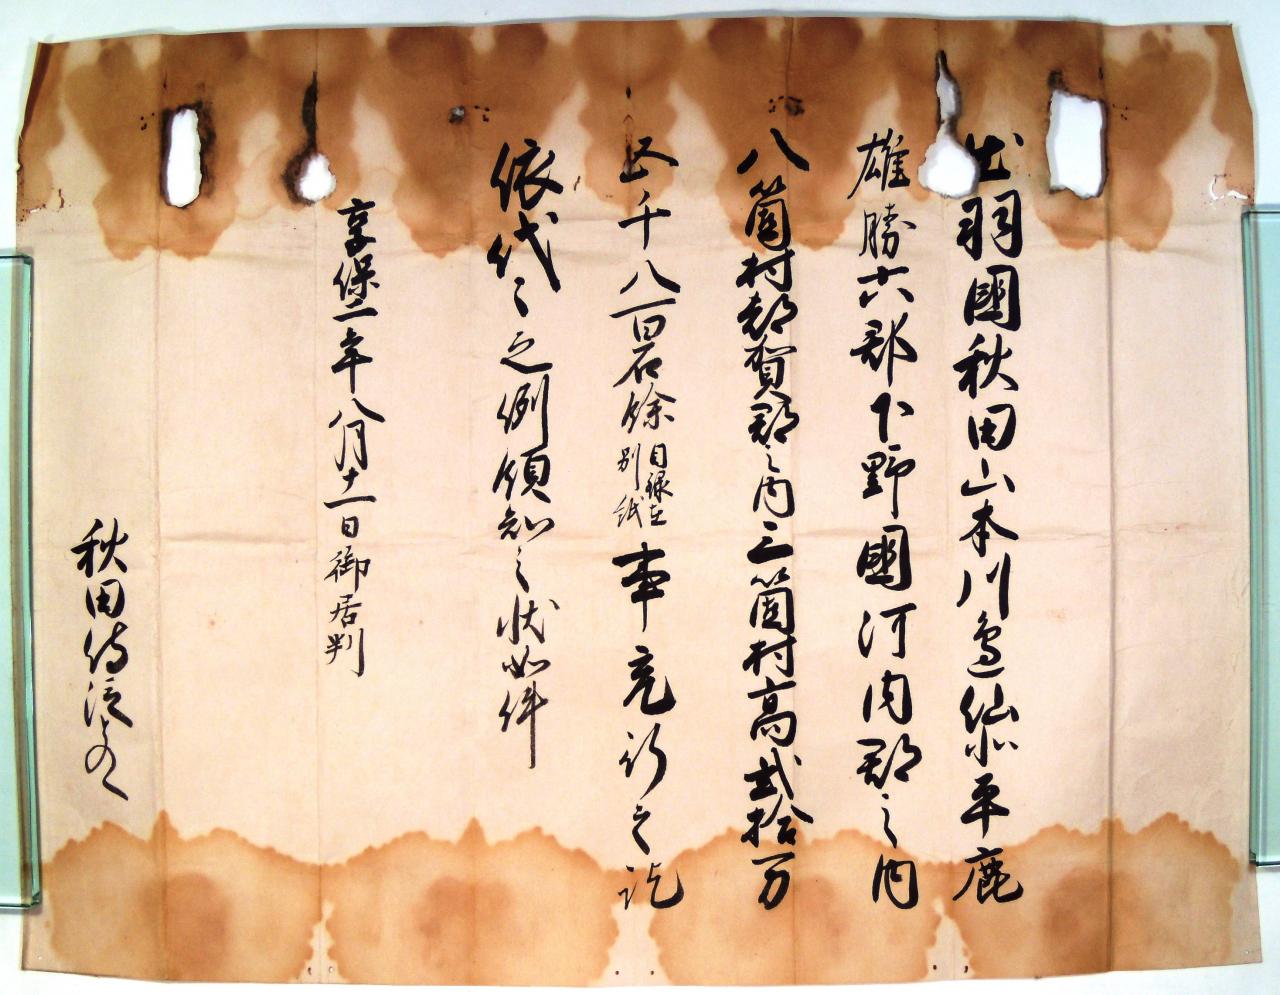 出羽國秋田山本川邊仙北平鹿
雄勝六郡下野國河内郡之内
八箇村都賀郡之内三箇村高貳拾万
五千八百石餘目録在別紙事充行之訖
依代々之例領知之状如件
享保二年八月十一日御居判
秋田侍従との